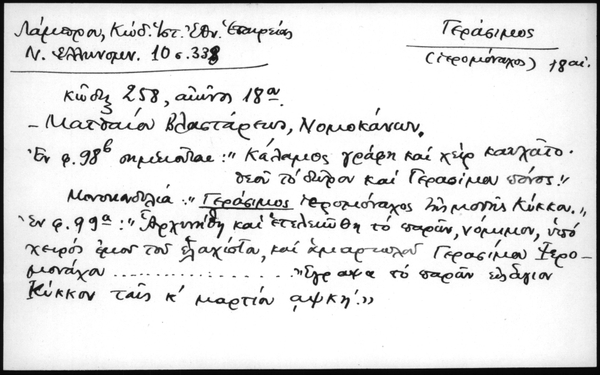 Λάμπρου, Κώδ. Ἱστ. Ἐθν. Ἑταιρείας
Ν. Ἑλληνομν. 10 σ. 338
Γεράσιμος
(ἱερομόναχος) 18 αἰ.
κῶδιξ 258, αἰῶνος 18α.
– Ματθαίου Βλαστάρεως, Νομοκάνων.
Ἐν φ. 98b σημειοῦται: "Κάλαμος γράφη καὶ χεὶρ
θεοῦ τὸ δῶρον καὶ Γερασίμου πόνος."
Μονοκονδυλιά: "Γεράσιμος ἱερομόναχος τῆς μονῆς Κύκκου."
Ἐν φ. 99α: "Ἀρχινήθη καὶ ἐτελειώθη τὸ παρὸν, νόμιμον, ὑπὸ
χειρός ἐμοῦ τοῦ ἐλαχίστου, καὶ ἁμαρτωλοῦ Γερασίμου Ἱερο-
μονάχου .................. "Ἔγραψα τὸ παρὸν εἰς ἅγιον
Κύκκον ταῖς κ' μαρτίου ͵αψκη'."